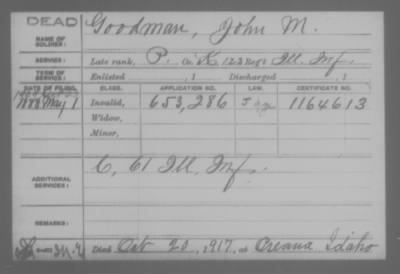 DEAD
NAME OF SOLDIER: Goodman, John M.
SERVICE: Late rank, P. Co. K, 123 Reg't Ill. Inf.
TERM OF SERVICE: Enlisted , 1 Discharged , 1
DATE OF FILING. CLASS. APPLICATION NO. LAW. CERTIFICATE NO.
May 1 Invalid, 653,286 1164613
Widow,
Minor,
ADDITIONAL SERVICES: C, 61 Ill. Inf.
REMARKS:
Died Oct 20, 1917, at Oreana, Idaho